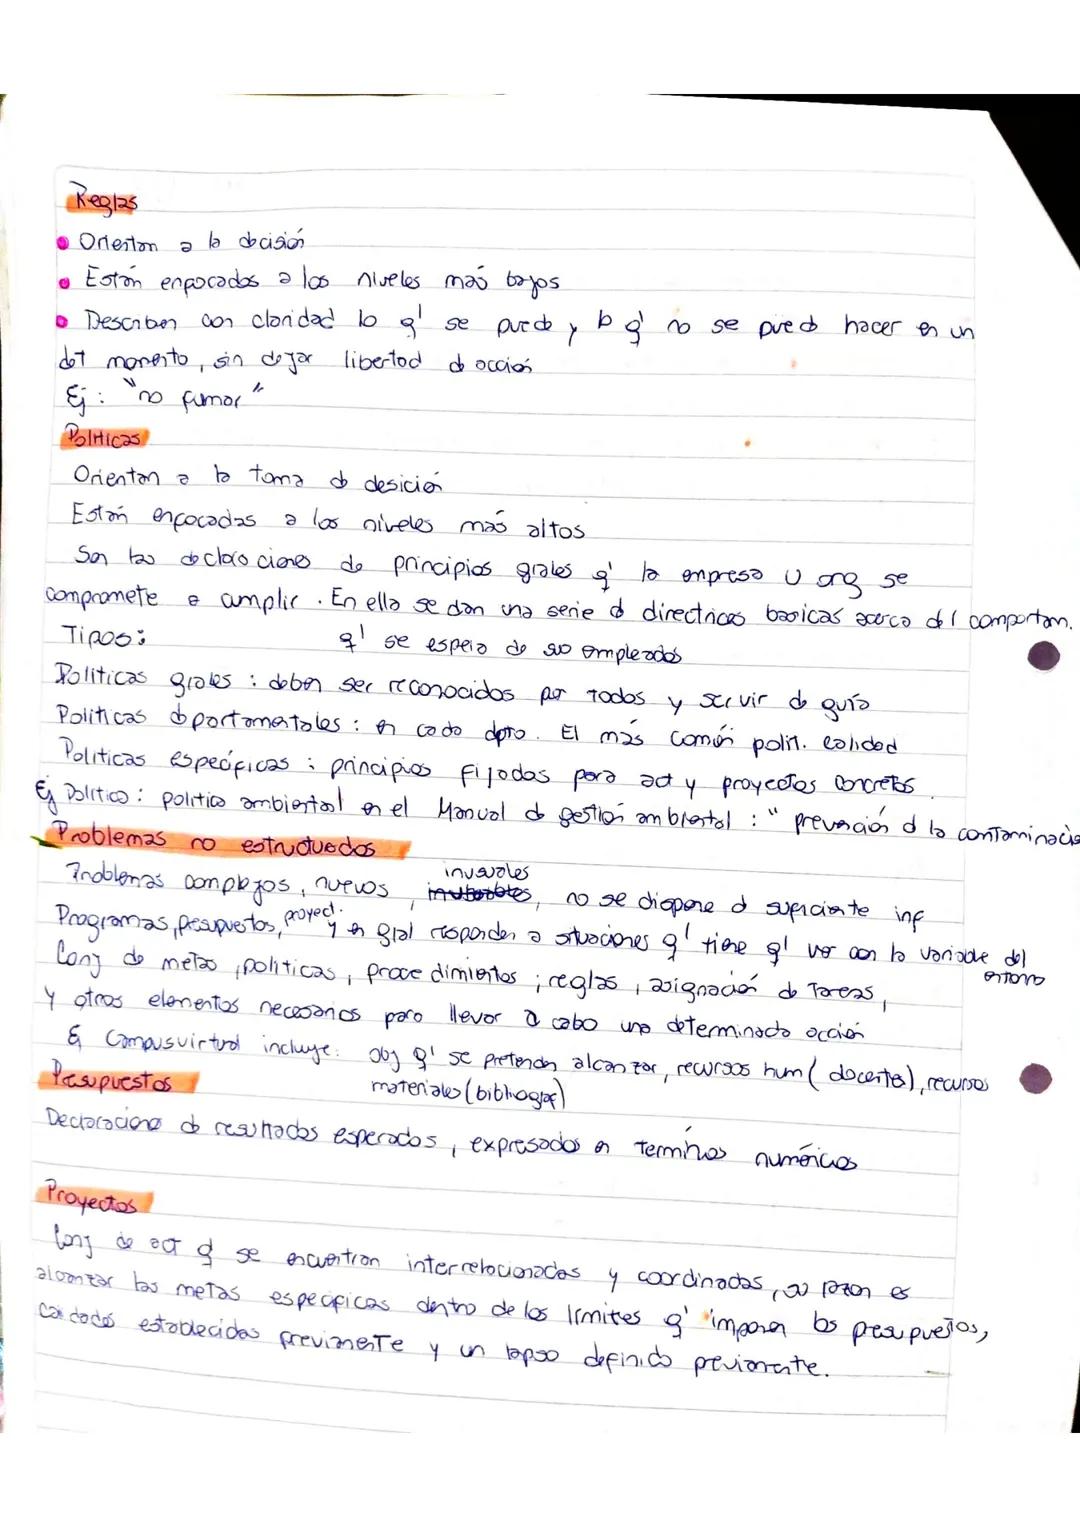 Reglas
Orientan a la decisión
Están enfocados a los niveles más bajos
Describen con claridad lo q' se puede y lo q' no se puede hacer en un
det momento, sin dejar libertad de acción
Ej: "no fumar"
Políticas
Orientan a la toma de desición
Están enfocadas a los niveles más altos
Son las declaraciones de principios grales q' la empresa u org se
compromete a cumplir. En ella se dan una serie de directrices basicas acerca del comportam.
q' se espera de sus empleados
Tipos:
Politicas grales: deben ser reconocidos por todos y servir de guía
Politicas dportamentales: en cada dpto. El más común polit. calidad
Politicas específicas: principios fijados para act y proyectos concretos.
Ej Politica: politica ambiental en el Manual de gestión ambiental: "prevención d la contaminació
Problemas no estructuados
Problemas complejos, nuevos, inusuales, no se dispone d suficiente inf
Programas, presupuestos, proyect. y en gral responden a situaciones q' tiene q' ver con la variable del entorno
Conj de metas, politicas, procedimientos; reglas, asignación de tareas,
y otros elementos necesarios para llevar a cabo una determinada acción
Ej Campusvirtual incluye: obj q' se pretenden alcanzar, recursos hum (docentes), recursos
materiales (bibliograf)
Presupuestos
Declaraciones de resultados esperados, expresados en terminos numéricos
Proyectos
Conj de act q se encuentran interrelacionadas y coordinadas, su razon es
alcanzar las metas especificas dentro de los límites q' imponen los presupuestos,
calidades establecidas previamente y un lapso definido previamente.